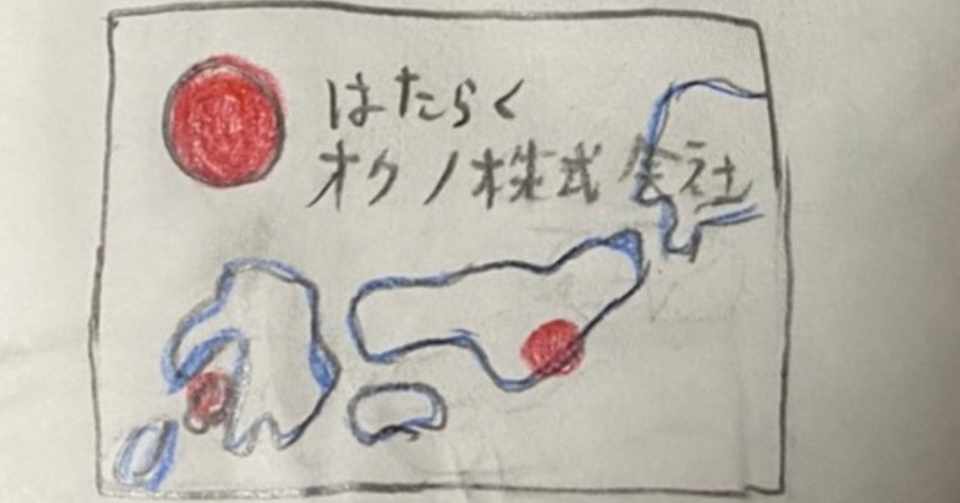 はたらく
オクノ株式会社